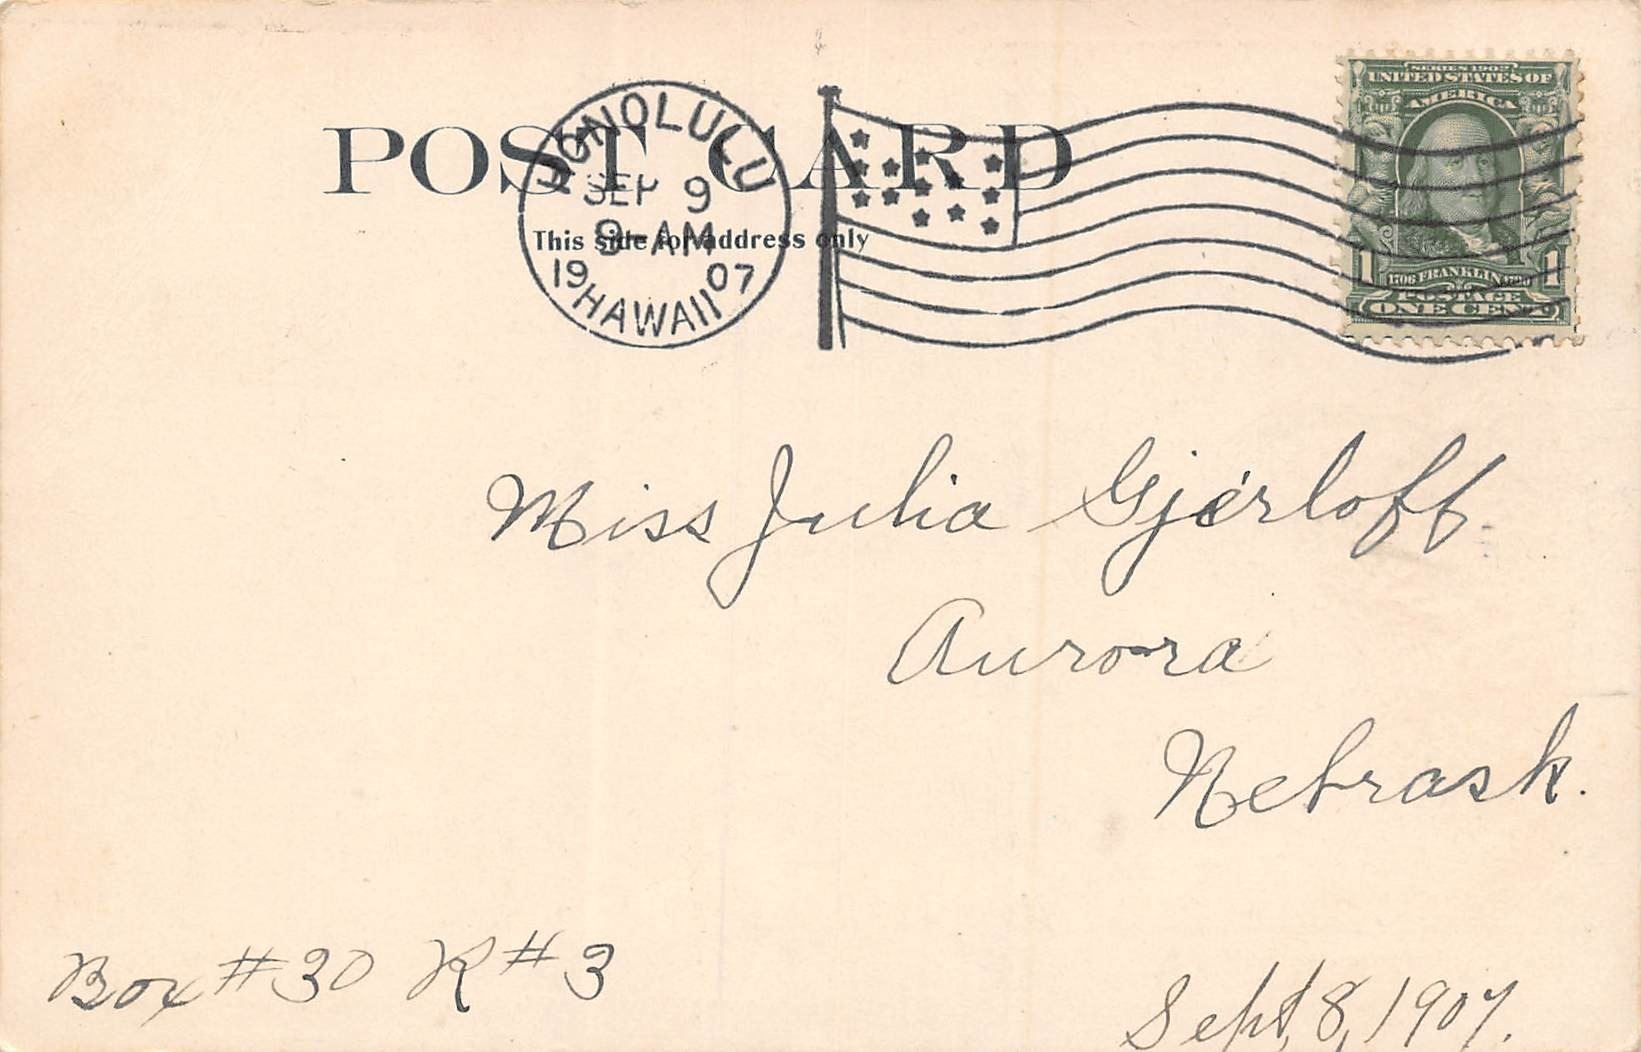 POST CARD
This side for address only
HONOLULU
SEP 9
9-AM
1907
HAWAII
SERIES 1902
UNITED STATES OF
AMERICA
1706 FRANKLIN 1790
1 1
POSTAGE
ONE CENT
Miss Julia Gjerloff
Aurora
Nebrask.
Box #30 R #3
Sept, 8, 1907.